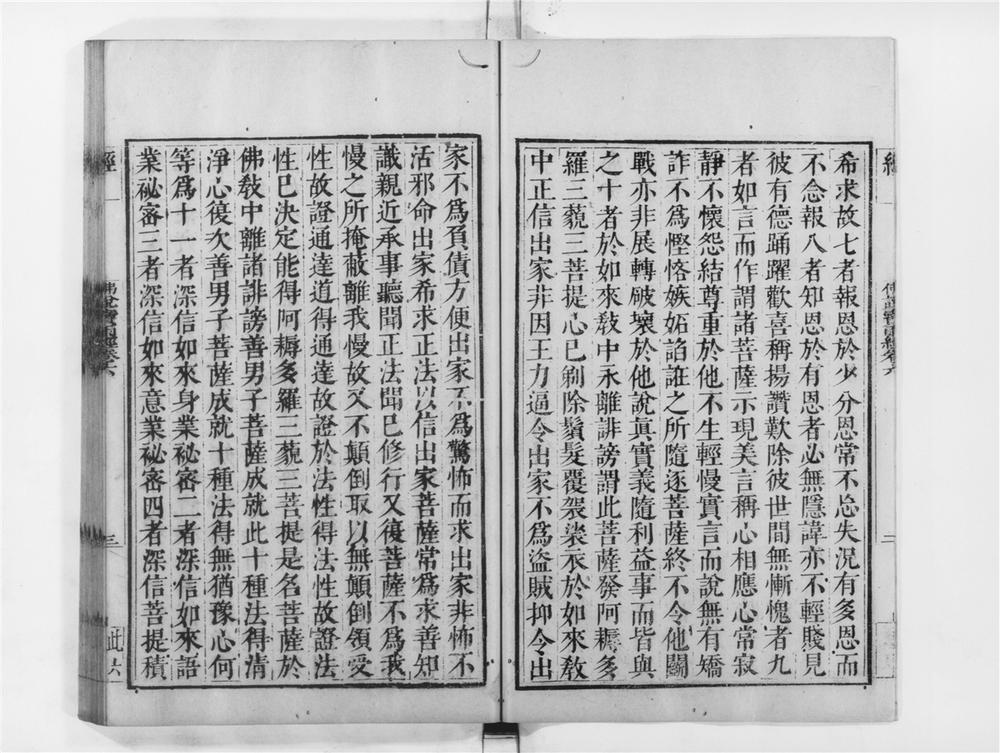 希求故七者報恩於少分恩常不忘失況有多恩而
不念報八者知恩於有恩者必無隱諱亦不輕賤見
彼有德踊躍歡喜稱揚讚歎除彼世間無慚愧者九
者如言而作謂諸菩薩示現美言稱心相應心常寂
靜不懷怨結尊重於他不生輕慢實言而說無有矯
詐不爲慳悋嫉妬諂誑之所隨逐菩薩終不令他鬬
戰亦非展轉破壞於他說眞實義隨利益事而皆與
之十者於如來敎中永離誹謗謂此菩薩發阿耨多
羅三藐三菩提心已剃除鬚髮覆袈裟衣於如來敎
中正信出家非因王力逼令出家不爲盜賊抑令出
家不爲負債方便出家不爲驚怖而求出家非怖不
活邪命出家希求正法以信出家菩薩常爲求善知
識親近承事聽聞正法聞已修行又復菩薩不爲我
慢之所掩蔽離我慢故又不顛倒取以無顛倒領受
性故證通達道得通達故證於法性得法性故證法
性已決定能得阿耨多羅三藐三菩提是名菩薩於
佛敎中離諸誹謗善男子菩薩成就此十種法得清
淨心復次善男子菩薩成就十種法得無猶豫心何
等爲十一者深信如來身業祕審二者深信如來語
業祕審三者深信如來意業祕審四者深信菩提積
經
佛說寶雨經卷六
三
此六